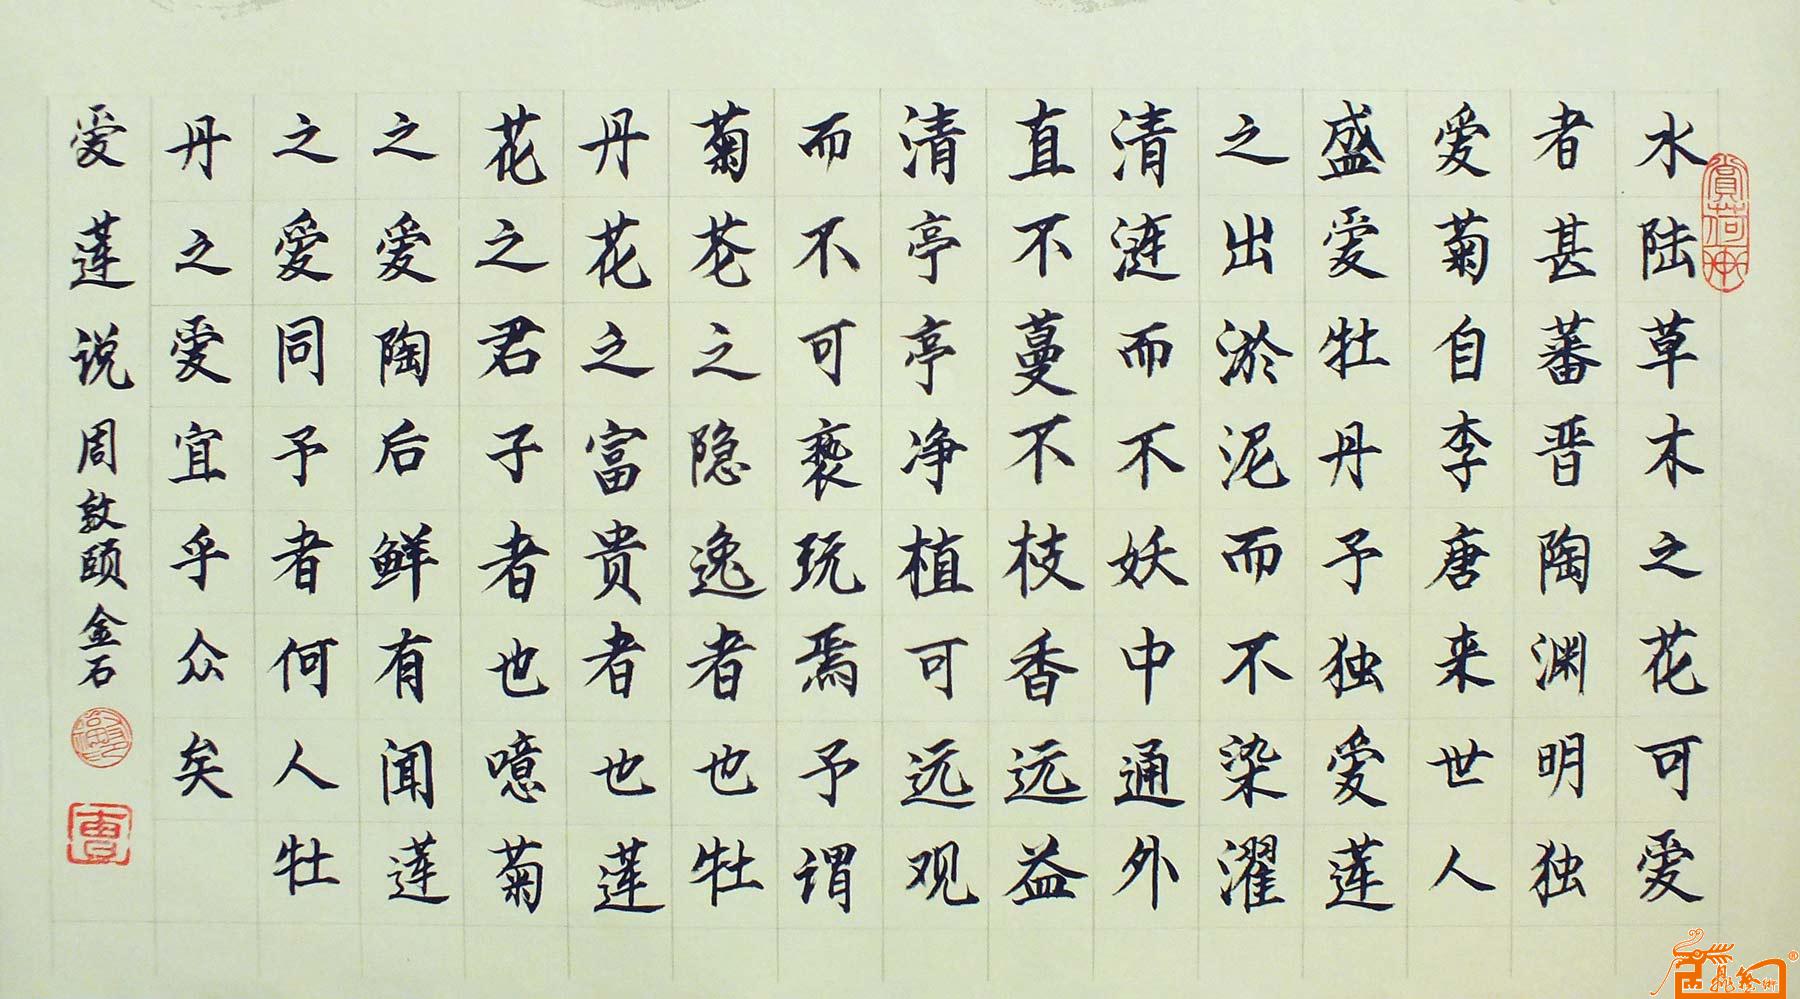 水陆草木之花可爱
者甚蕃晋陶渊明独
爱菊自李唐来世人
盛爱牡丹予独爱莲
之出淤泥而不染濯
清涟而不妖中通外
直不蔓不枝香远益
清亭亭净植可远观
而不可亵玩焉予谓
菊花之隐逸者也牡
丹花之富贵者也莲
花之君子者也噫菊
之爱陶后鲜有闻莲
之爱同予者何人牡
丹之爱宜乎众矣
爱莲说 周敦颐 金石
赏荷